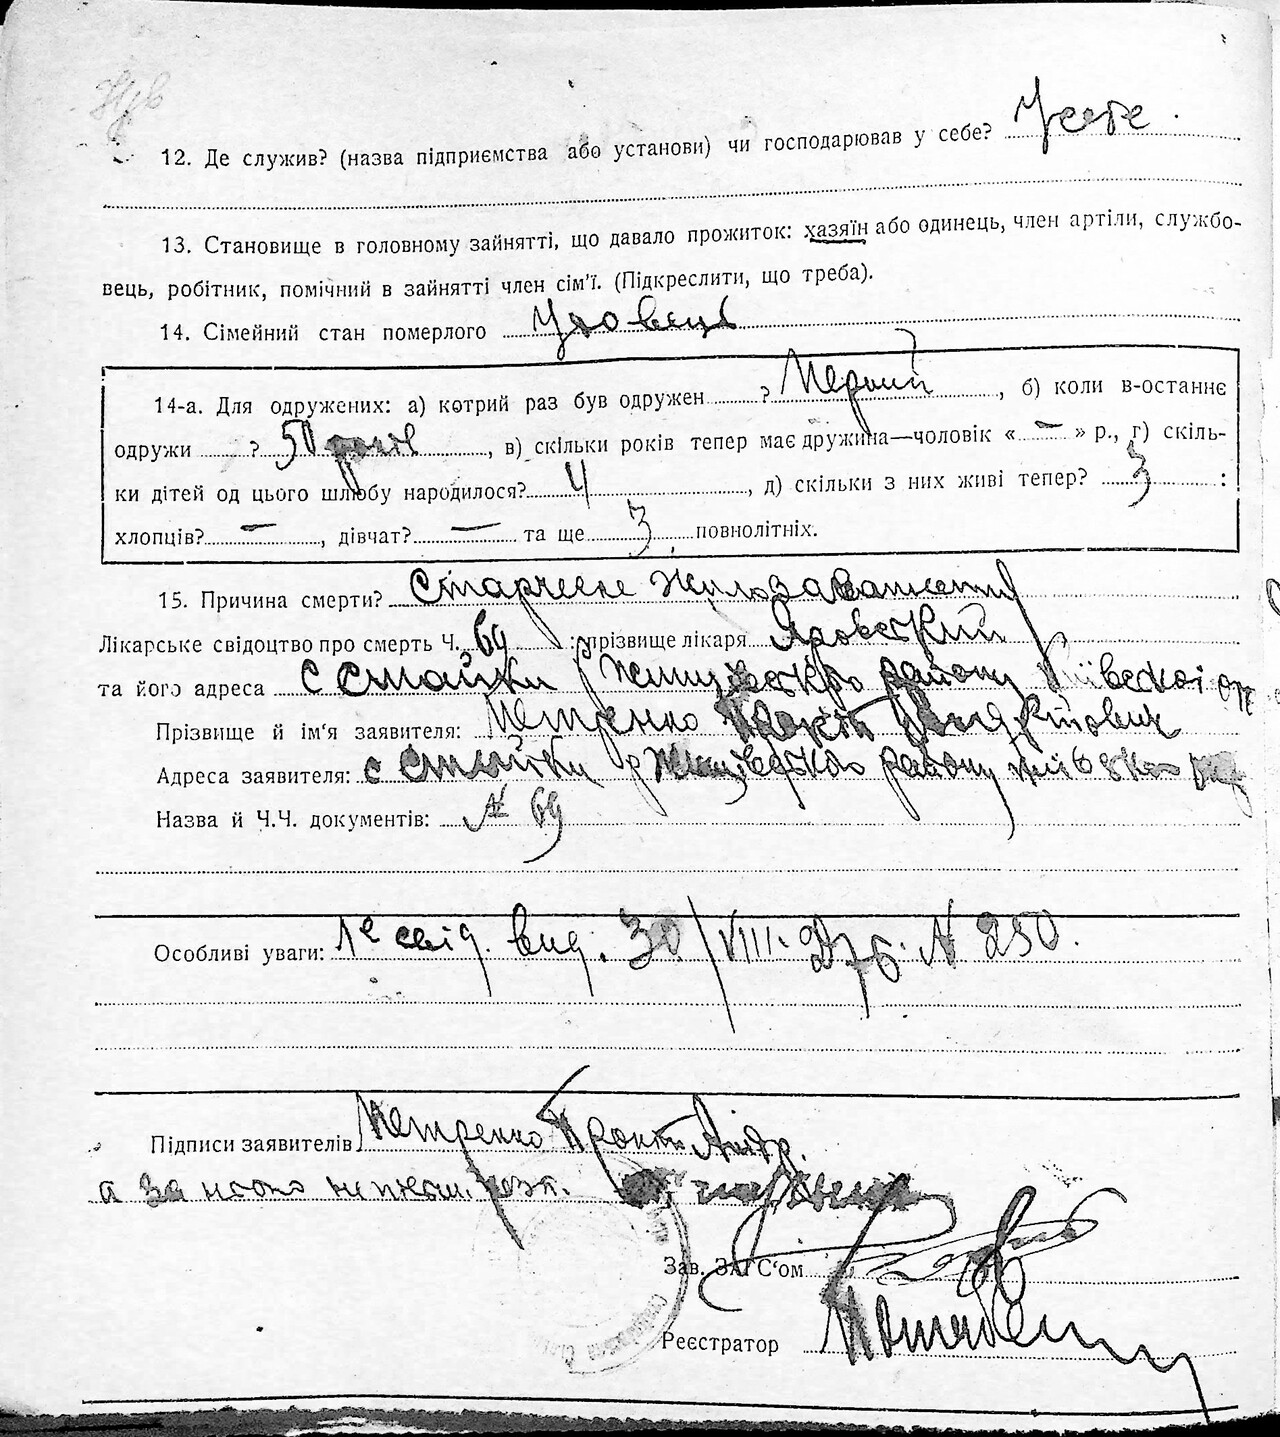 12. Де служив? (назва підприємства або установи) чи господарював у себе? У себе
13. Становище в головному зайнятті, що давало прожиток: хазяїн або одинець, член артіли, службо-
вець, робітник, помічний в зайнятті член сім'ї. (Підкреслити, що треба).
14. Сімейний стан померлого Удовець
14-а. Для одружених: а) котрий раз був одружен ? Перший, б) коли в-останнє
одружи ? 50 років, в) скільки років тепер має дружина—чоловік « — » р., г) скіль-
ки дітей од цього шлюбу народилося? 4, д) скільки з них живі тепер? 3 :
хлопців? —, дівчат? — та ще 3 повнолітніх.
15. Причина смерти? Старчене
Лікарське свідоцтво про смерть Ч. 69 : прізвище лікаря Яровский
та його адреса с Стайки району
Прізвище й ім'я заявителя: Петренко
Адреса заявителя: с Стайки району
Назва й Ч.Ч. документів: № 69
Особливі уваги: свід. вид. 30/VIII. № 250.
Підписи заявителів Петренко Андр.
а за нього
Зав. ЗАГС'ом
Реєстратор